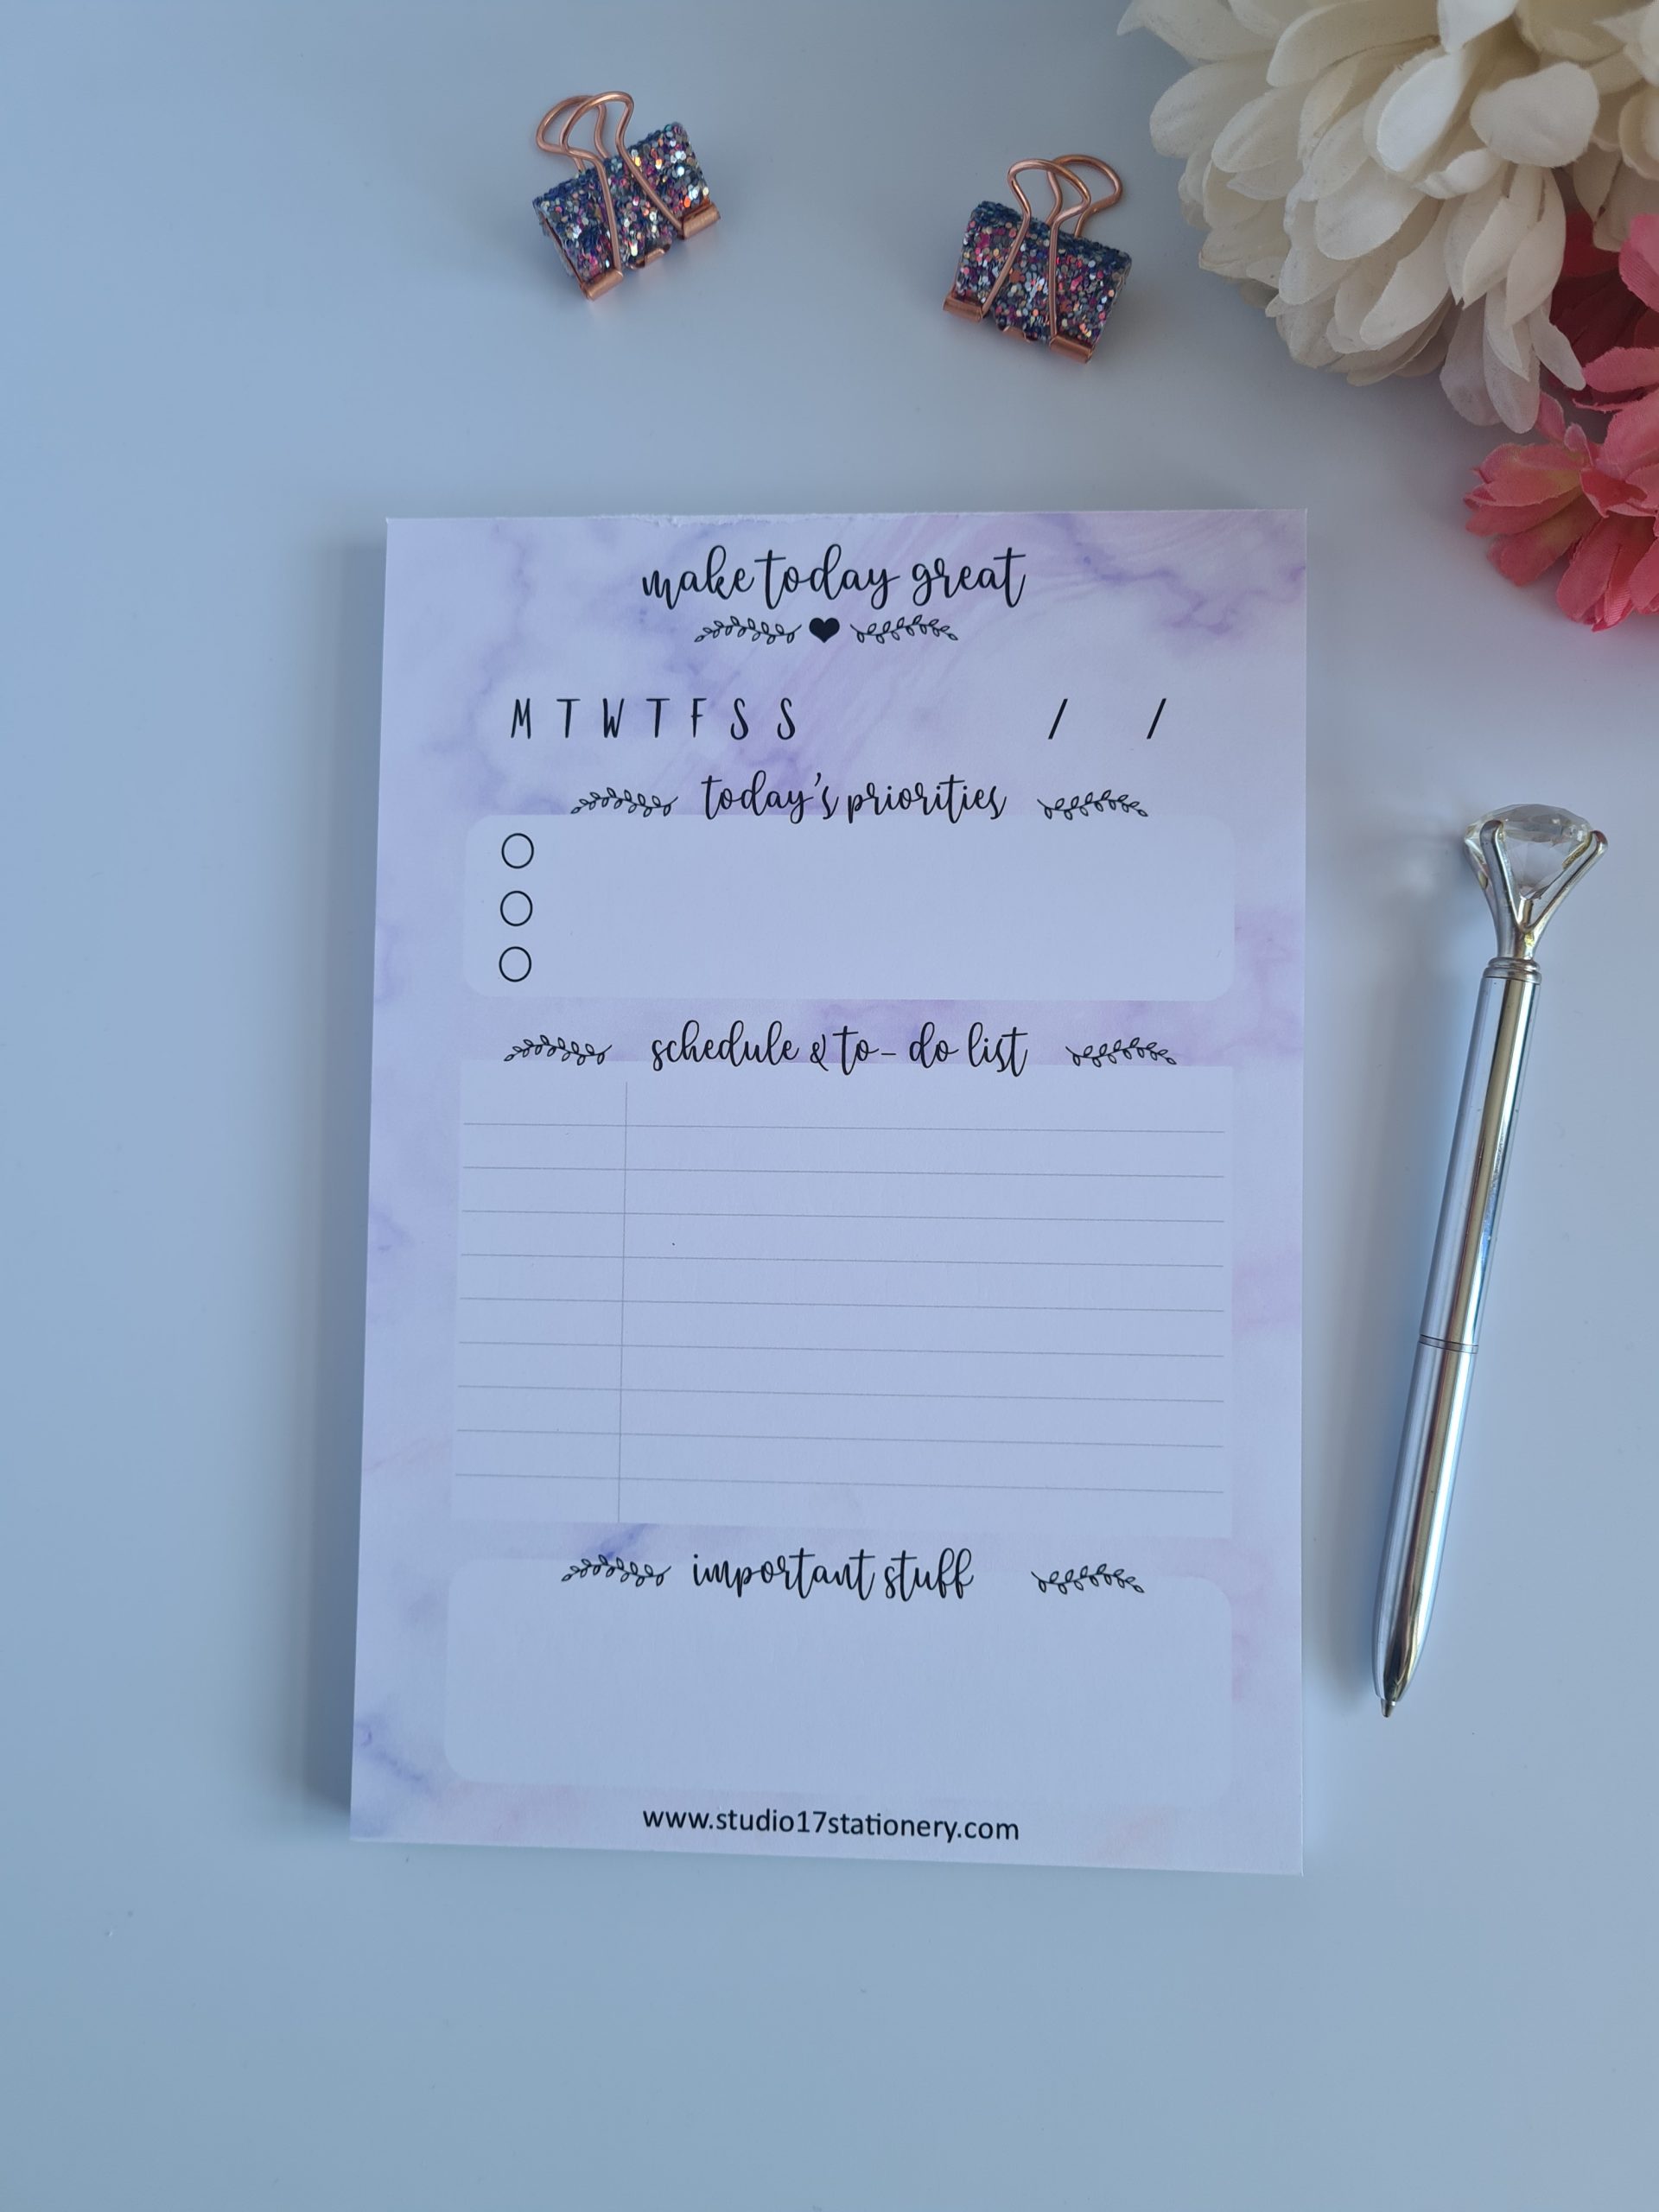 make today great
M T W T F S S / /
today's priorities
schedule & to-do list
important stuff
www.studio17stationery.com